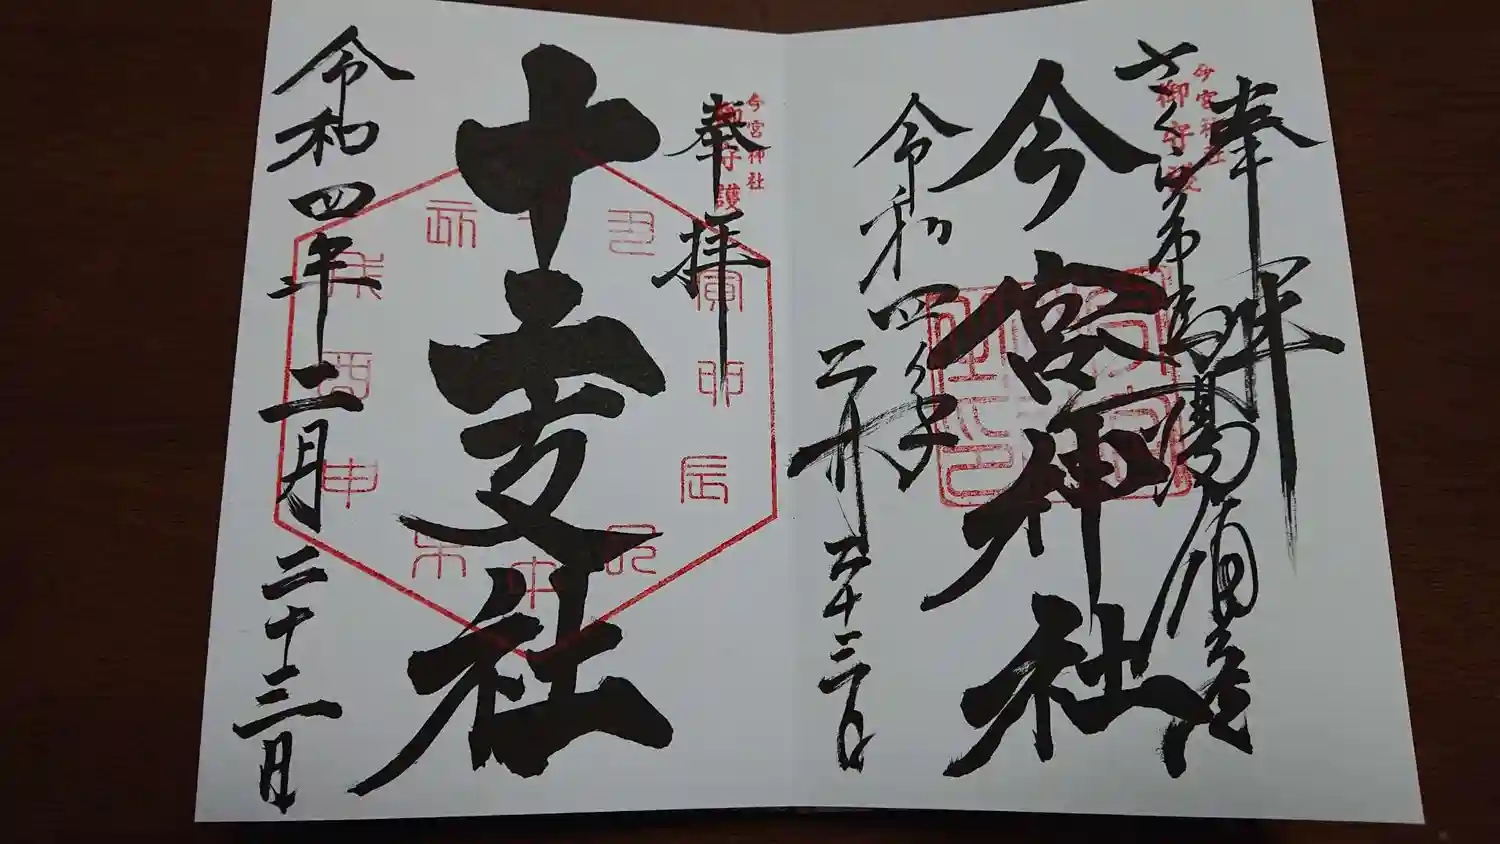 奉拝
今宮神社
御守護
今宮神社
令和四年二月二十三日
奉拝
今宮神社
御守護
十二支社
令和四年二月二十三日
丑
寅
卯
辰
巳
午
未
申
酉
戌